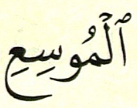 ٱلْمُوسِعِ